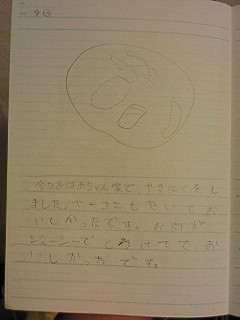 一 8日
今日おばあちゃん家で、やきにくをし
ました。ベーコンもやいてお
いしかったです。お肉が
ジューシーでとろけてて、お
いしかったです。